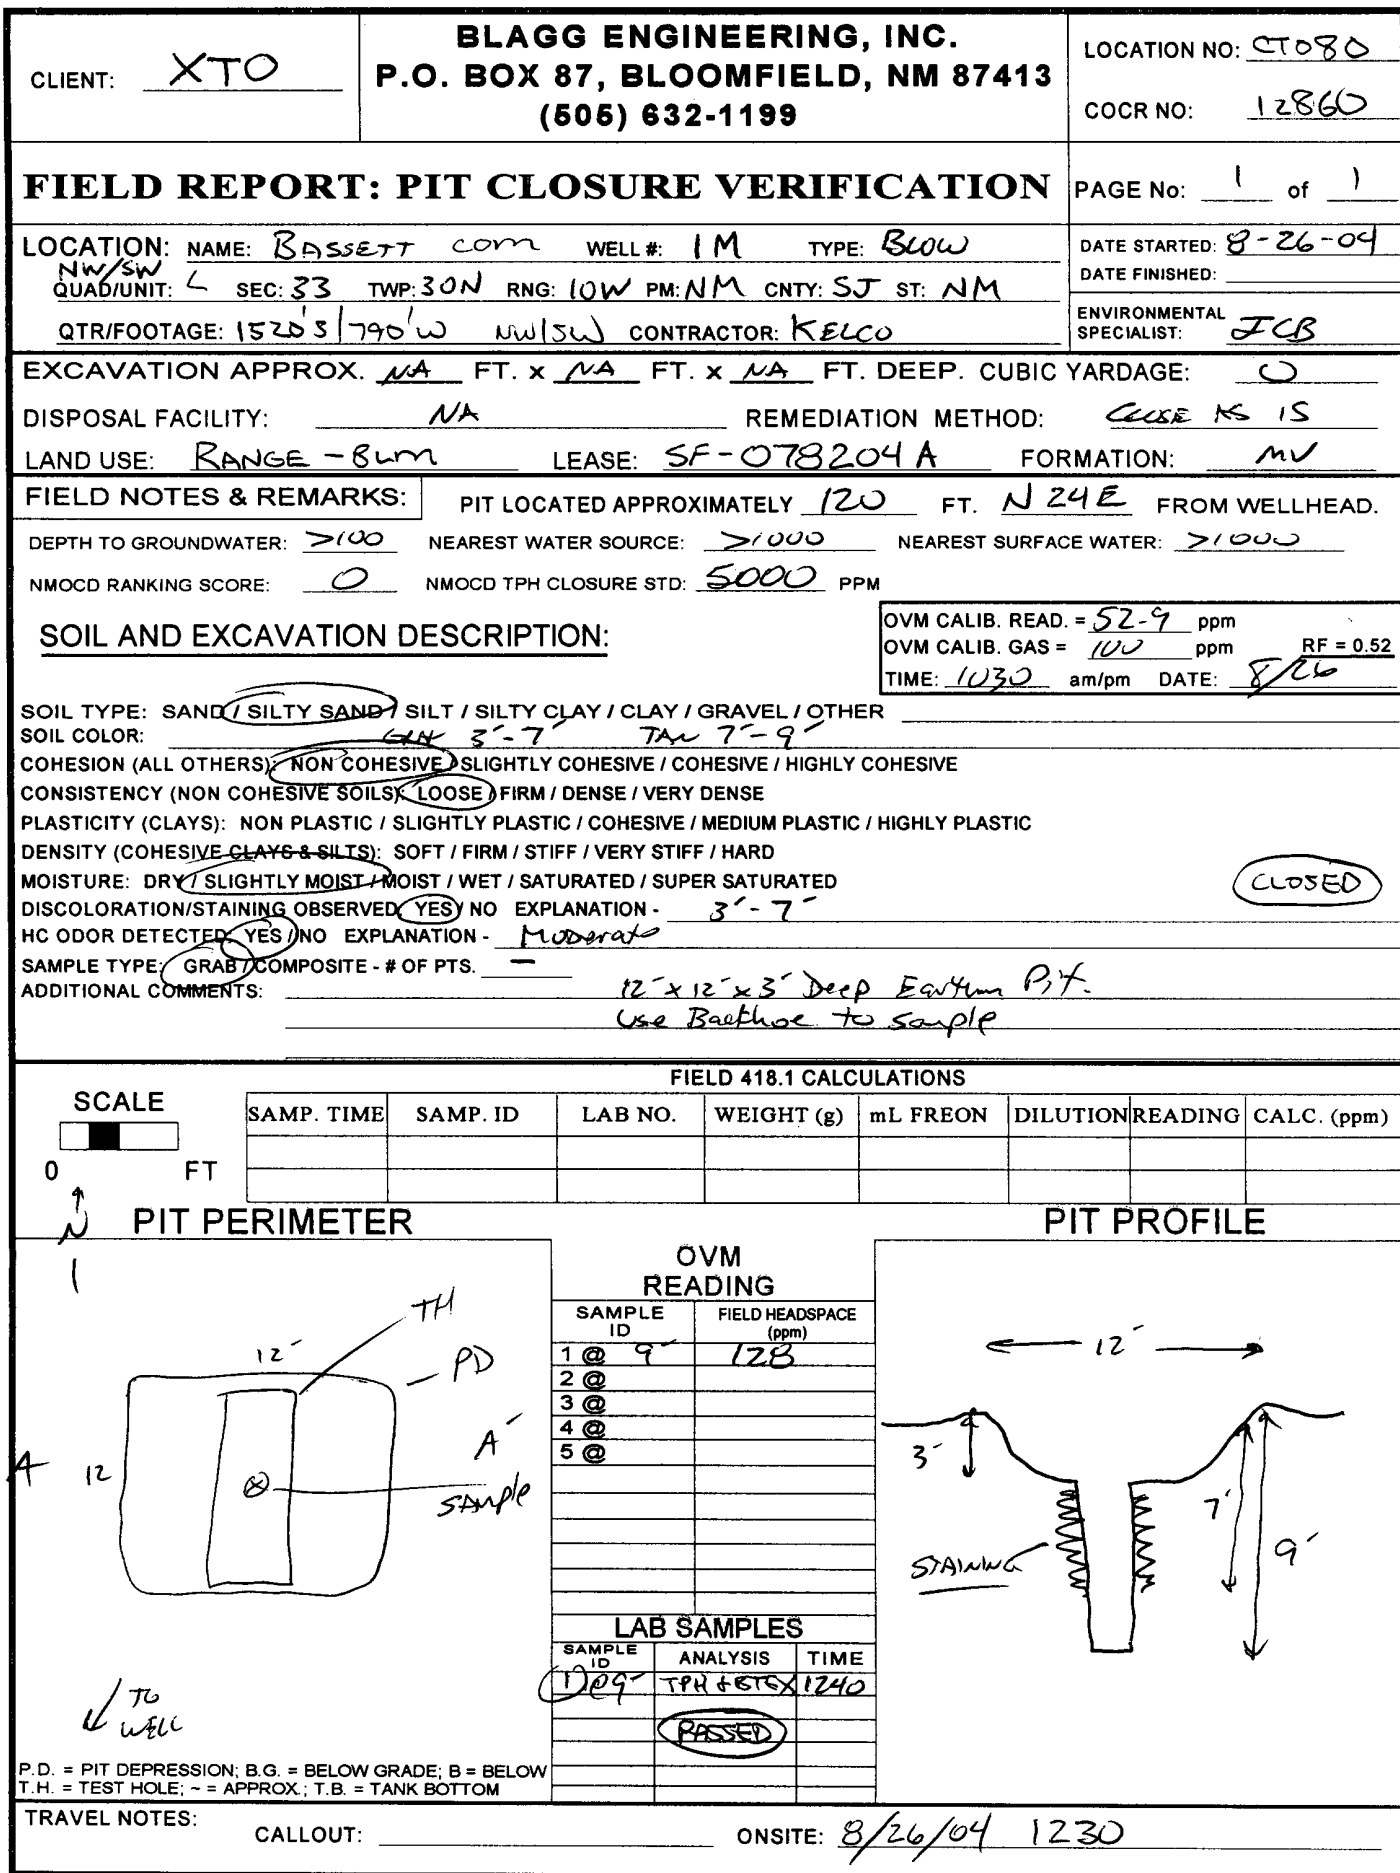 CLIENT: XTO
BLAGG ENGINEERING, INC.
P.O. BOX 87, BLOOMFIELD, NM 87413
(505) 632-1199
LOCATION NO: CT080
COCR NO: 12860
FIELD REPORT: PIT CLOSURE VERIFICATION
PAGE No: 1 of 1
LOCATION: NAME: BASSETT COM WELL #: 1M TYPE: BLOW
NW/SW
QUAD/UNIT: L SEC: 33 TWP: 30N RNG: 10W PM: NM CNTY: SJ ST: NM
QTR/FOOTAGE: 1520'S/790'W NW/SW CONTRACTOR: KELCO
DATE STARTED: 8-26-04
DATE FINISHED:
ENVIRONMENTAL
SPECIALIST: JCB
EXCAVATION APPROX. NA FT. x NA FT. x NA FT. DEEP. CUBIC YARDAGE: 0
DISPOSAL FACILITY: NA REMEDIATION METHOD: CLOSE AS IS
LAND USE: RANGE - BLM LEASE: SF-078204 A FORMATION: MV
FIELD NOTES & REMARKS: PIT LOCATED APPROXIMATELY 120 FT. N 24E FROM WELLHEAD.
DEPTH TO GROUNDWATER: >100 NEAREST WATER SOURCE: >1000 NEAREST SURFACE WATER: >1000
NMOCD RANKING SCORE: 0 NMOCD TPH CLOSURE STD: 5000 PPM
SOIL AND EXCAVATION DESCRIPTION:
OVM CALIB. READ. = 52.9 ppm
OVM CALIB. GAS = 100 ppm RF = 0.52
TIME: 1030 am/pm DATE: 8/26
SOIL TYPE: SAND / SILTY SAND / SILT / SILTY CLAY / CLAY / GRAVEL / OTHER
SOIL COLOR: 3'-7' TAN 7'-9'
COHESION (ALL OTHERS): NON COHESIVE / SLIGHTLY COHESIVE / COHESIVE / HIGHLY COHESIVE
CONSISTENCY (NON COHESIVE SOILS): LOOSE / FIRM / DENSE / VERY DENSE
PLASTICITY (CLAYS): NON PLASTIC / SLIGHTLY PLASTIC / COHESIVE / MEDIUM PLASTIC / HIGHLY PLASTIC
DENSITY (COHESIVE CLAYS & SILTS): SOFT / FIRM / STIFF / VERY STIFF / HARD
MOISTURE: DRY / SLIGHTLY MOIST / MOIST / WET / SATURATED / SUPER SATURATED
CLOSED
DISCOLORATION/STAINING OBSERVED: YES / NO EXPLANATION - 3'-7'
HC ODOR DETECTED: YES / NO EXPLANATION - Moderate
SAMPLE TYPE: GRAB / COMPOSITE - # OF PTS. —
ADDITIONAL COMMENTS: 12'x12'x3' Deep Earthen Pit.
Use Backhoe to sample
FIELD 418.1 CALCULATIONS
SCALE
0 FT
SAMP. TIME SAMP. ID LAB NO. WEIGHT (g) mL FREON DILUTION READING CALC. (ppm)
N
PIT PERIMETER
PIT PROFILE
TH
12'
PD
A'
A
12
SAMPLE
TO
WELL
P.D. = PIT DEPRESSION; B.G. = BELOW GRADE; B = BELOW
T.H. = TEST HOLE; ~ = APPROX.; T.B. = TANK BOTTOM
OVM
READING
SAMPLE ID FIELD HEADSPACE (ppm)
1 @ 9' 128
2 @
3 @
4 @
5 @
LAB SAMPLES
SAMPLE ID ANALYSIS TIME
1@9' TPH & BTEX 1240
PASSED
12'
3'
7'
9'
STAINING
TRAVEL NOTES: CALLOUT: ONSITE: 8/26/04 1230